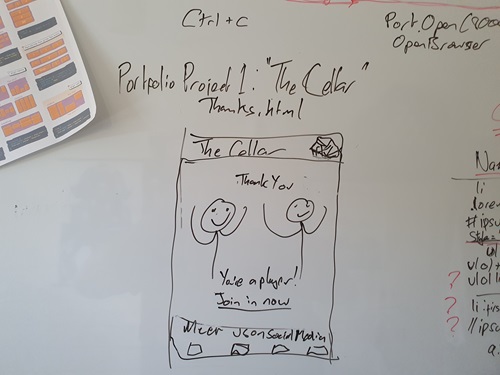 Ctrl + c
Port.Open (
OpenBrowser
Portfolio Project 1: "The Cellar"
Thanks.html
The Cellar
Thank You
You're a player!
Join in now
us on Social Media
li
.lorem
#ipsu
style=
ul
ul ol +
? ul ol li
? li
? //ipso
a.